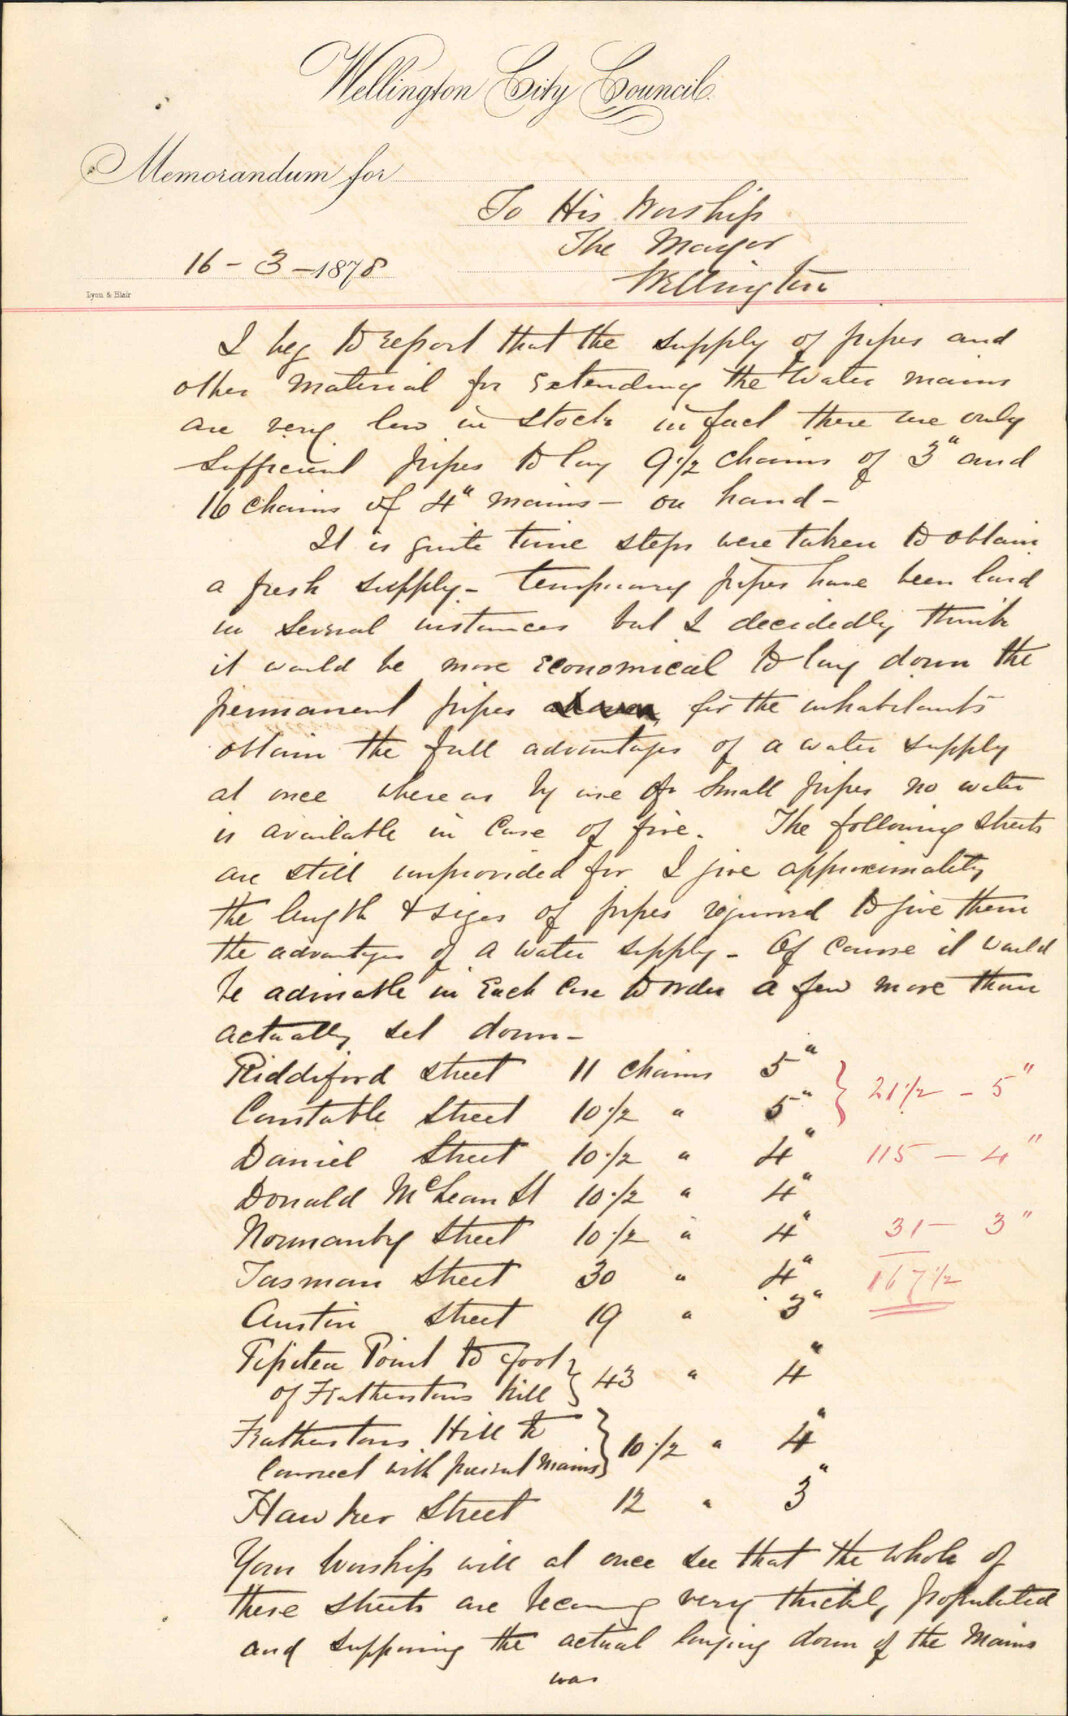 Wellington City Council.
Memorandum for
To His Worship
The Mayor
16 - 3 - 1878
Wellington
Lyon & Blair
I beg to report that the supply of pipes and
other material for Extending the Water mains
are very low in stock in fact there are only
sufficient pipes to lay 9 1/2 chains of 3" and
16 chains of 4" mains - on hand -
It is quite time steps were taken to obtain
a fresh supply - temporary pipes have been laid
in several instances but I decidedly think
it would be more Economical to lay down the
permanent pipes for the inhabitants
obtain the full advantages of a water supply
at once whereas by use of small pipes no water
is available in Case of fire. The following streets
are still unprovided for I give approximately
the length & sizes of pipes required to give them
the advantages of a water supply - Of course it would
be advisable in Each Case to order a few more than
actually set down -
Riddiford Street 11 chains 5" } 21 1/2 - 5"
Constable Street 10 1/2 " 5"
Daniel Street 10 1/2 " 4" 115 - 4"
Donald McLean St 10 1/2 " 4"
Normanby Street 10 1/2 " 4" 31 - 3"
Tasman Street 30 " 4" 167 1/2
Austin Street 19 " 3"
Pipitea Point to foot }
of Featherstons hill 43 " 4"
Featherstons Hill to }
Connect with present mains 10 1/2 " 4"
Hawker Street 12 " 3"
Your Worship will at once see that the whole of
these streets are becoming very thickly populated
and supposing the actual laying down of the Mains
was